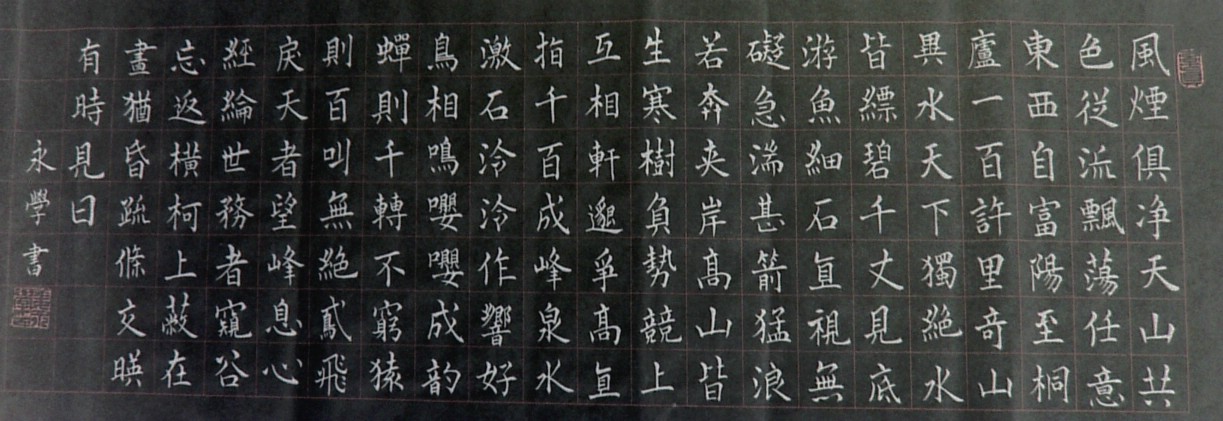 風煙俱净天山共
色從流飄蕩任意
東西自富陽至桐
廬一百許里奇山
異水天下獨絕水
皆縹碧千丈見底
游魚細石直視無
礙急湍甚箭猛浪
若奔夾岸高山皆
生寒樹負勢競上
互相軒邈爭高直
指千百成峰泉水
激石泠泠作響好
鳥相鳴嚶嚶成韵
蟬則千轉不窮猿
則百叫無絕鳶飛
戾天者望峰息心
經綸世務者窺谷
忘返橫柯上蔽在
晝猶昏疏條交映
有時見日
永學書